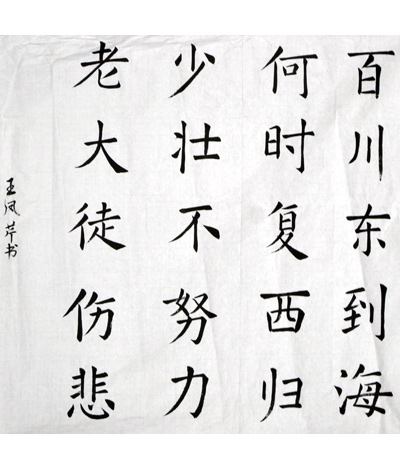 百川东到海
何时复西归
少壮不努力
老大徒伤悲
王凤芹书